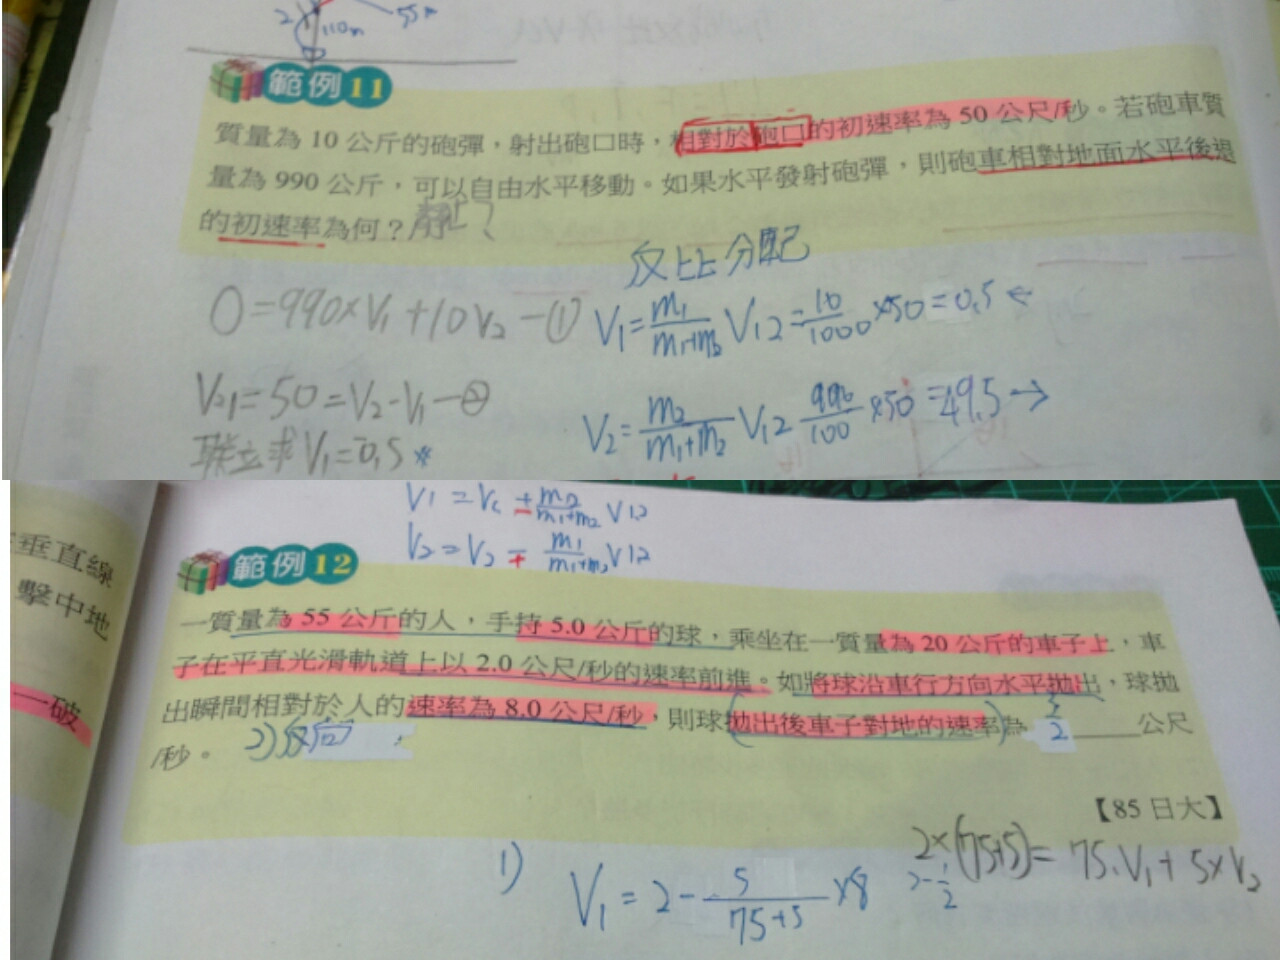 2
110m
55m
範例 11
質量為 10 公斤的砲彈，射出砲口時，相對於砲口的初速率為 50 公尺/秒。若砲車質
量為 990 公斤，可以自由水平移動。如果水平發射砲彈，則砲車相對地面水平後退
的初速率為何？靜止？
反比分配
0=990×V₁+10V₂—①
V₁=m₁/(m₁+m₂) V₁₂=10/1000×50=0.5←
V₂₁=50=V₂-V₁—②
V₂=m₂/(m₁+m₂) V₁₂ 990/100×50=49.5→
聯立求V₁=0.5※
垂直線
擊中地
一破
V₁=Vc+m₂/(m₁+m₂) V₁₂
V₂=V₂-m₁/(m₁+m₂) V₁₂
範例 12
一質量為 55 公斤的人，手持 5.0 公斤的球，乘坐在一質量為 20 公斤的車子上，車
子在平直光滑軌道上以 2.0 公尺/秒的速率前進。如將球沿車行方向水平拋出，球拋
出瞬間相對於人的速率為 8.0 公尺/秒，則球拋出後車子對地的速率為 3/2 公尺
/秒。 2)反向
【85 日大】
1)
V₁=2-5/(75+5)×8
2×(75+5)=75.V₁+5×V₂
2-1/2